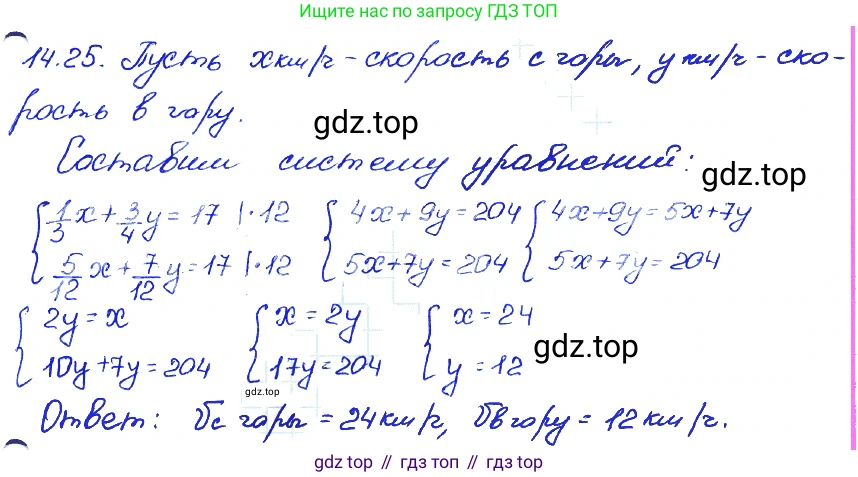 Ищите нас по запросу ГДЗ ТОП
14.25. Пусть x км/ч - скорость с горы, y км/ч - ско-
рость в гору.
gdz.top
Составим систему уравнений:
gdz.top
{ 1/3 x + 3/4 y = 17 |·12 { 4x + 9y = 204 { 4x + 9y = 5x + 7y
{ 5/12 x + 7/12 y = 17 |·12 { 5x + 7y = 204 { 5x + 7y = 204
{ 2y = x { x = 2y { x = 24
{ 10y + 7y = 204 { 17y = 204 { y = 12
gdz.top
gdz.top
Ответ: Vс горы = 24 км/ч, Vв гору = 12 км/ч.
gdz top // гдз топ // gdz top